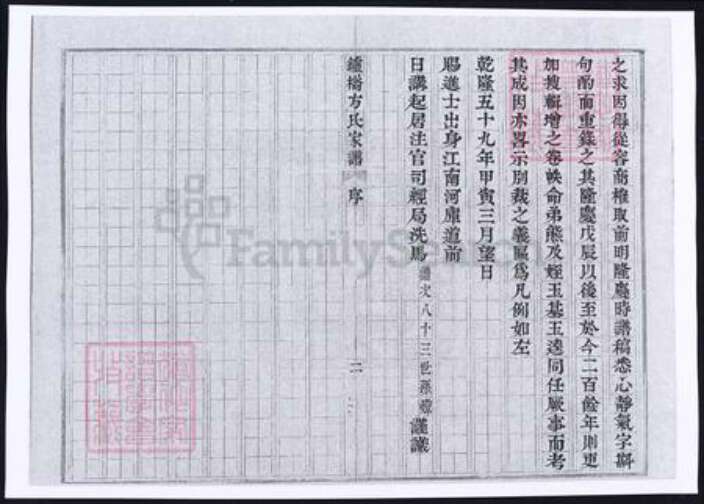 之求因得從容商榷取前明隆慶時譜稿悉心靜氣字斟
句酌而重錄之其隆慶戊辰以後至於今二百餘年則更
加搜輯增之卷帙命弟熊及姪玉基玉逵同任厥事而考
其成因亦畧示別裁之義區為凡例如左
乾隆五十九年甲寅三月望日
賜進士出身江南河庫道前
日講起居注官司經局洗馬 八十三世孫 謹識
鍾橋方氏家譜 序 二
FamilySearch